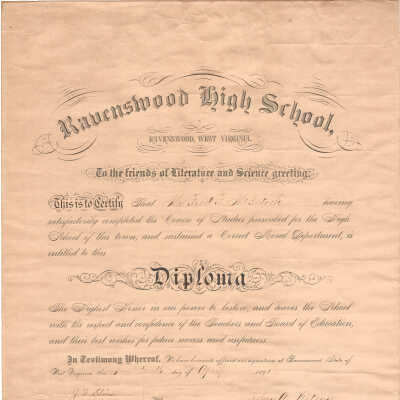 Ravenswood High School,
RAVENSWOOD, WEST VIRGINIA.
To the friends of Literature and Science greeting:
This is to Certify That having
satisfactorily completed the Course of Studies prescribed for the High
School of this town, and sustained a Correct Moral Department, is
entitled to this
Diploma
The Highest Honor in our power to bestow, and leaves the School
with the respect and confidence of the Teachers and Board of Education,
and their best wishes for future success and usefulness.
In Testimony Whereof, We have hereunto affixed our signatures at Ravenswood, State of
West Virginia this day of